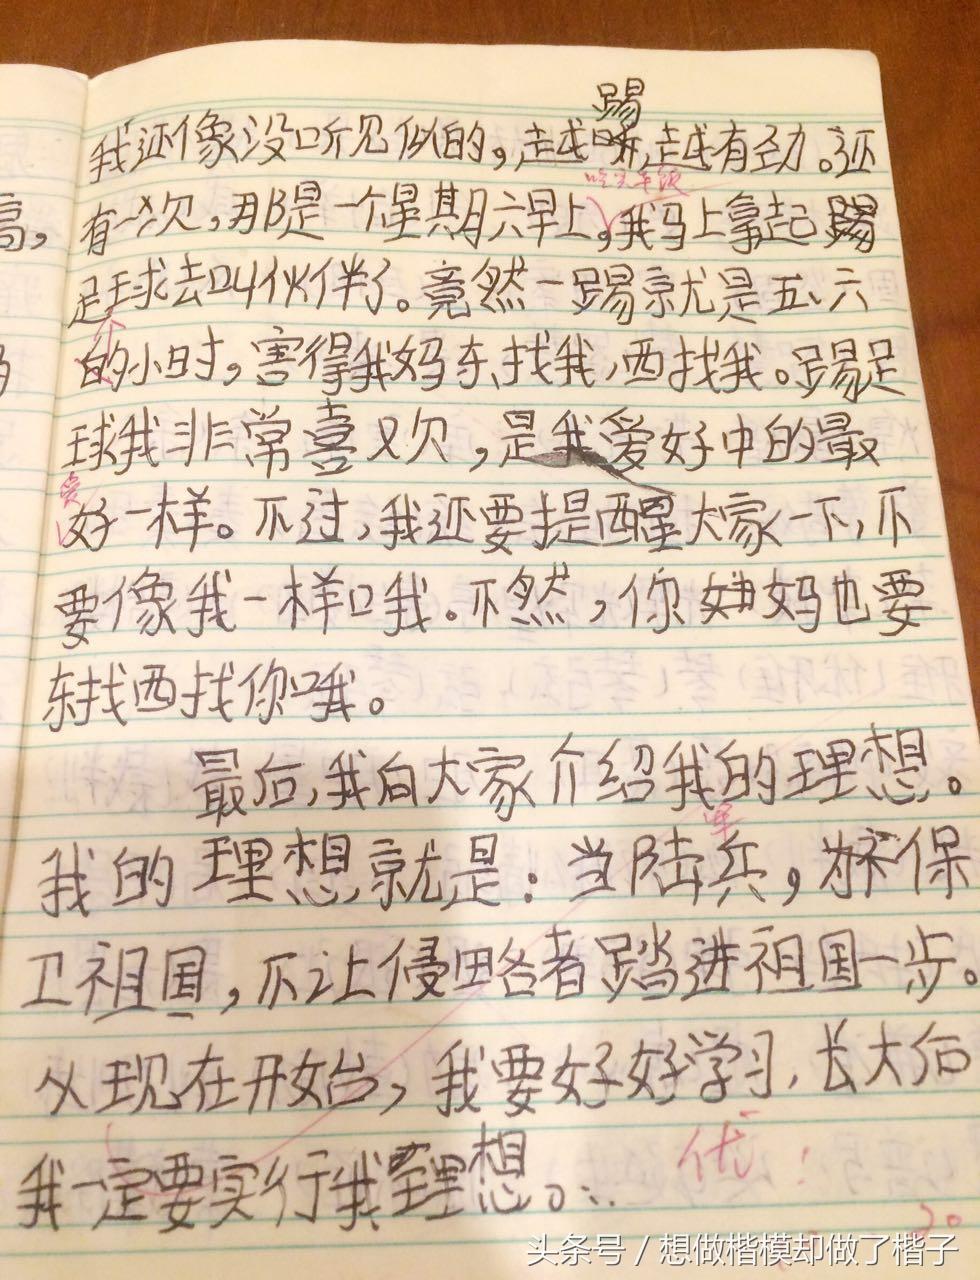 踢
我还像没听见似的,越,越有劲。还
吃完早饭
有一次,那是一个星期六早上,我马上拿起踢
足球去叫伙伴了。竟然一踢就是五、六
个
的小时,害得我妈东找我,西找我。踢足
球我非常喜欢,是我爱好中的最
爱
好一样。不过,我还要提醒大家一下,不
要像我一样哦。不然,你妈妈也要
东找西找你哦。
最后,我向大家介绍我的理想。
我的理想就是:当陆兵,来保
卫祖国,不让侵略者踏进祖国一步。
从现在开始,我要好好学习,长大后
我一定要实行我理想。
优!
头条号/想做楷模却做了楷子